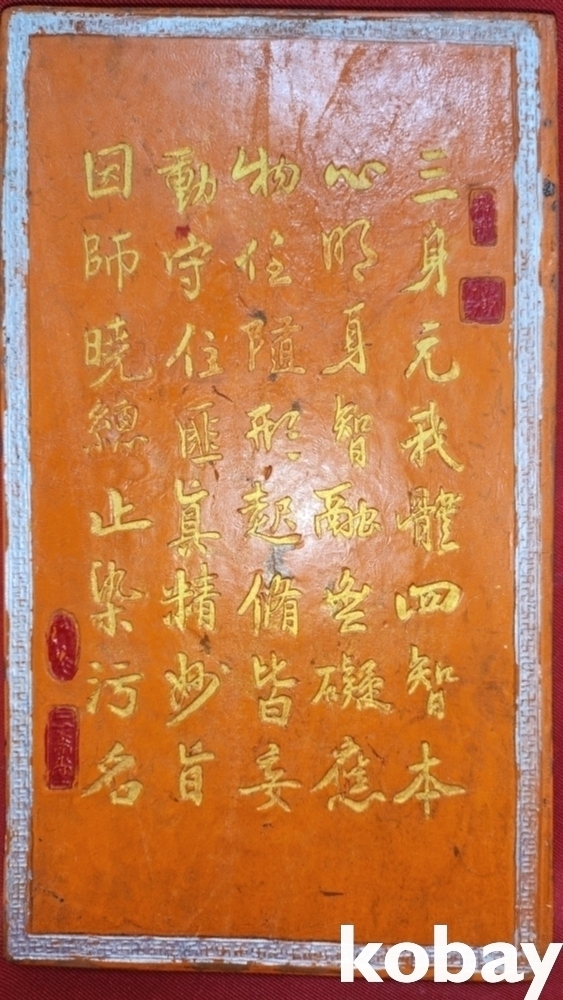 三身元我體四智本
心明身智融無礙應
物任隨形起脩皆妄
動守住匪真精妙旨
因師曉總亾染污名
kobay